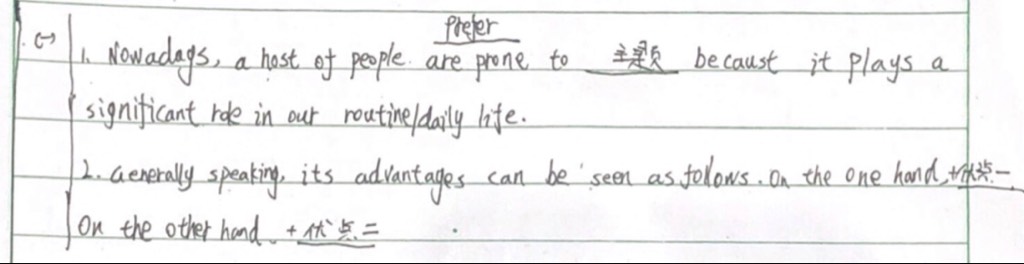 (一)
Prefer
1. Nowadays, a host of people are prone to 主题 becaust it plays a
significant role in our routine/daily life.
2. Generally speaking, its advantages can be seen as follows. On the one hand, +优点一
On the other hand. +优点二